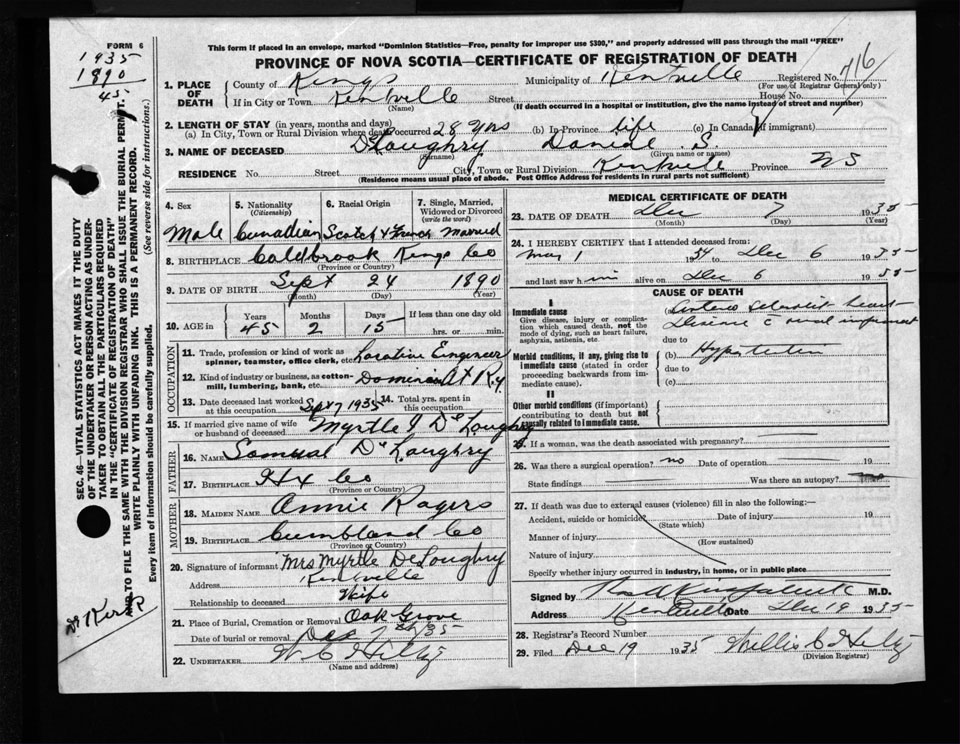 FORM 6
This form if placed in an envelope, marked "Dominion Statistics—Free, penalty for improper use $300," and properly addressed will pass through the mail "FREE"
1935
1890
45
PROVINCE OF NOVA SCOTIA—CERTIFICATE OF REGISTRATION OF DEATH
716
1. PLACE OF DEATH County of Kings Municipality of Kentville Registered No.
(For use of Registrar General only)
If in City or Town Kentville Street House No.
(Name) (If death occurred in a hospital or institution, give the name instead of street and number)
2. LENGTH OF STAY (in years, months and days)
(a) In City, Town or Rural Division where death occurred 28 yrs (b) In Province Life (c) In Canada (if immigrant)
3. NAME OF DECEASED DeLoughry S.
(Surname) (Given name or names)
RESIDENCE No. Street City, Town or Rural Division Kentville Province NS
(Residence means usual place of abode. Post Office Address for residents in rural parts not sufficient)
4. Sex 5. Nationality (Citizenship) 6. Racial Origin 7. Single, Married, Widowed or Divorced (write the word)
Male Canadian Scotch & French Married
8. BIRTHPLACE Coldbrook Kings Co
(Province or Country)
9. DATE OF BIRTH Sept 24 1890
(Month) (Day) (Year)
10. AGE in Years Months Days If less than one day old
45 2 15 hrs. or min.
OCCUPATION
11. Trade, profession or kind of work as spinner, teamster, office clerk, etc. Locative Engineer
12. Kind of industry or business, as cotton-mill, lumbering, bank, etc. Dominion At Ry.
13. Date deceased last worked at this occupation Sept 7 1935 14. Total yrs. spent in this occupation
15. If married give name of wife or husband of deceased Myrtle J DeLoughry
FATHER
16. NAME Samual DeLoughry
17. BIRTHPLACE Hx Co
(Province or Country)
MOTHER
18. MAIDEN NAME Annie Rogers
19. BIRTHPLACE Cumbland Co
(Province or Country)
20. Signature of informant Mrs Myrtle DeLoughry
Address Kentville
Relationship to deceased Wife
21. Place of Burial, Cremation or Removal Oak Grove
Date of burial or removal Dec /35
22. UNDERTAKER W. C. Hiltz
(Name and address)
MEDICAL CERTIFICATE OF DEATH
23. DATE OF DEATH Dec 7 1935
(Month) (Day) (Year)
24. I HEREBY CERTIFY that I attended deceased from:
1 34 to Dec 6 1935
and last saw him alive on Dec 6 1935
CAUSE OF DEATH
I
Immediate cause (a) heart
Give disease, injury or complication which caused death, not the mode of dying, such as heart failure, asphyxia, asthenia, etc.
Disease
due to
Morbid conditions, if any, giving rise to immediate cause (stated in order proceeding backwards from immediate cause).
(b)
due to
(c)
II
Other morbid conditions (if important) contributing to death but not causally related to immediate cause.
25. If a woman, was the death associated with pregnancy?
26. Was there a surgical operation? no Date of operation 19
State findings Was there an autopsy?
27. If death was due to external causes (violence) fill in also the following:—
Accident, suicide or homicide? Date of injury 19
(State which)
Manner of injury
(How sustained)
Nature of injury
Specify whether injury occurred in industry, in home, or in public place
Signed by M.D.
Address Kentville Date Dec 19 1935
28. Registrar's Record Number
29. Filed Dec 19 1935 Willis C Hiltz
(Division Registrar)
SEC. 46—VITAL STATISTICS ACT MAKES IT THE DUTY
OF THE UNDERTAKER OR PERSON ACTING AS UNDER-
TAKER TO OBTAIN ALL THE PARTICULARS REQUIRED
IN THE "CERTIFICATE OF REGISTRATION OF DEATH"
AND TO FILE THE SAME WITH THE DIVISION REGISTRAR WHO SHALL ISSUE THE BURIAL PERMIT.
WRITE PLAINLY WITH UNFADING INK. THIS IS A PERMANENT RECORD.
Every item of information should be carefully supplied. (See reverse side for instructions.)